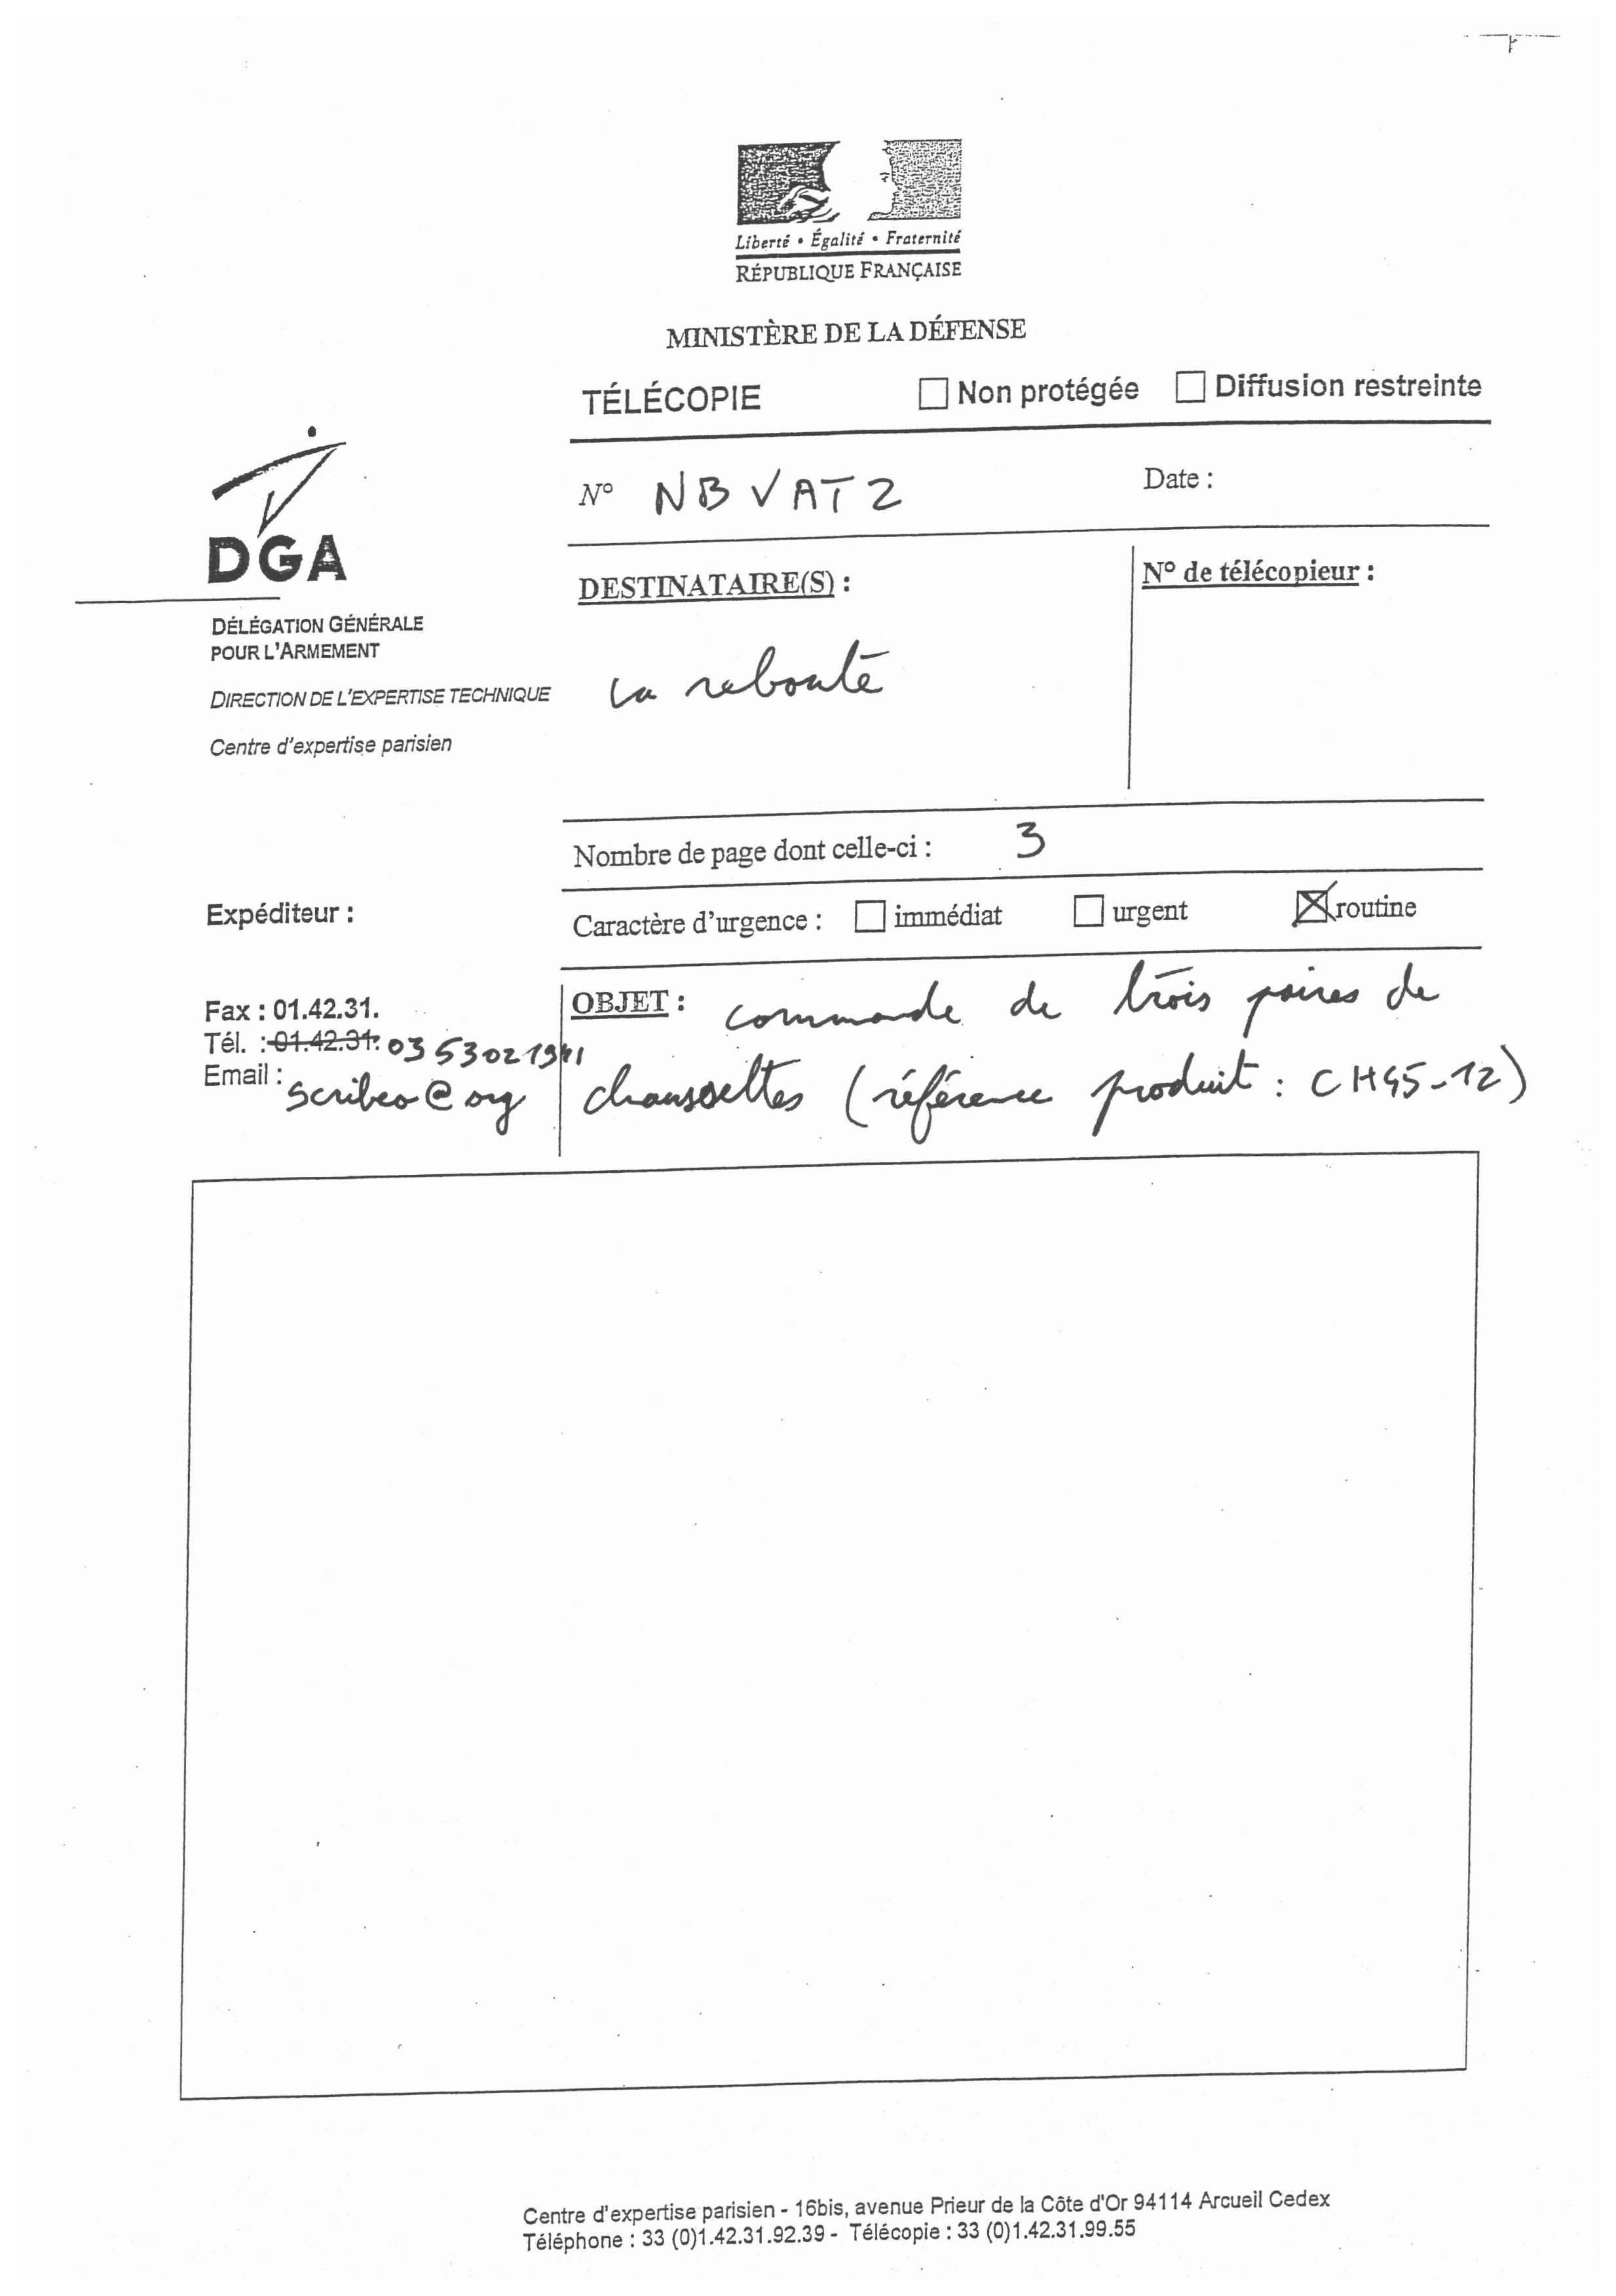 Liberté • Égalité • Fraternité
RÉPUBLIQUE FRANÇAISE
MINISTÈRE DE LA DÉFENSE
TÉLÉCOPIE Non protégée Diffusion restreinte
N° NBVATZ Date :
DGA
DÉLÉGATION GÉNÉRALE
POUR L'ARMEMENT
DIRECTION DE L'EXPERTISE TECHNIQUE
Centre d'expertise parisien
DESTINATAIRE(S) : N° de télécopieur :
la reboute
Nombre de page dont celle-ci : 3
Expéditeur :
Caractère d'urgence : immédiat urgent routine
Fax : 01.42.31.
Tél. : 01.42.31. 03 53021941
Email : scribeo@org
OBJET : commande de trois paires de
chaussettes (référence produit : CH45-12)
Centre d'expertise parisien - 16bis, avenue Prieur de la Côte d'Or 94114 Arcueil Cedex
Téléphone : 33 (0)1.42.31.92.39 - Télécopie : 33 (0)1.42.31.99.55